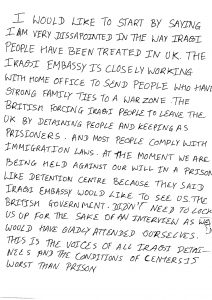 I WOULD LIKE TO START BY SAYING
I AM VERY DISSATOINTED IN THE WAY IRAQI
PEOPLE HAVE BEEN TREATED IN UK. THE
IRAQI EMBASSY IS CLOSELY WORKING
WITH HOME OFFICE TO SEND PEOPLE WHO HAVE
STRONG FAMILY TIES TO A WARZONE. THE
BRITISH FORCING IRAQI PEOPLE TO LEAVE THE
UK BY DETAINING PEOPLE AND KEEPING AS
PRISIONERS. AND MOST PEOPLE COMPLY WITH
IMMIGRATION LAWS. AT THE MOMENT WE ARE
BEING HELD AGAINST OUR WILL IN A PRISON
LIKE DETENTION CENTRE BECAUSE THEY SAID
IRAQI EMBASSY WOULD LIKE TO SEE US. THE
BRITISH GOVERNMENT. DIDN'T NEED TO LOCK
US UP FOR THE SAKE OF AN INTERVIEW AS WE
WOULD HAVE GLADLY ATTENDED OURSELVES.
THIS IS THE VOICES OF ALL IRAQI DETAI-
NEES AND THE CONDITIONS OF CENTERS IS
WORST THAN PRISON